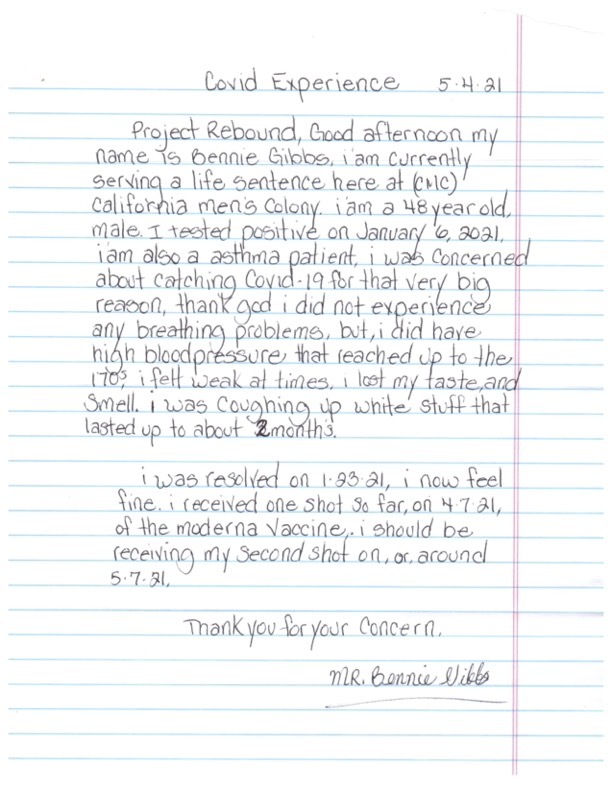 Covid Experience 5.4.21
Project Rebound, Good afternoon my
name is Bennie Gibbs, i am currently
serving a life sentence here at (CMC)
California men's Colony. i am a 48 year old,
male. I tested positive on January 6, 2021,
i am also a asthma patient, i was concerned
about catching Covid-19 for that very big
reason, thank god i did not experience
any breathing problems, but, i did have
high bloodpressure that reached up to the
170s, i felt weak at times, i lost my taste, and
Smell. i was coughing up white stuff that
lasted up to about 2 months.
i was resolved on 1.23.21, i now feel
fine. i received one shot so far, on 4.7.21,
of the moderna Vaccine,. i should be
receiving my second shot on, or, around
5.7.21,
Thank you for your Concern.
MR. Bennie Gibbs